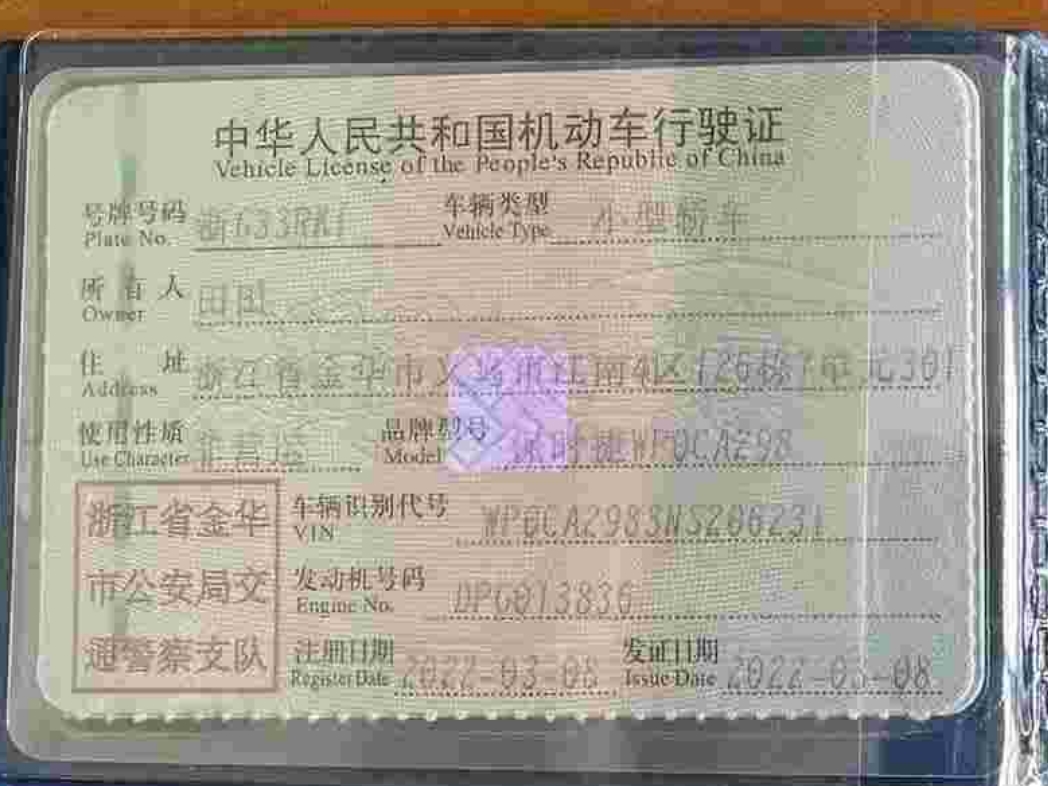 中华人民共和国机动车行驶证
Vehicle License of the People's Republic of China
号牌号码 浙G33RK1 车辆类型 小型轿车
Plate No. Vehicle Type
所有人
Owner
住址 浙江省金华市义乌市江南4区126栋1单元301
Address
使用性质 非营运 品牌型号 保时捷WP0CA298
Use Character Model
浙江省金华
市公安局交
通警察支队
车辆识别代号 WP0CA2983NS206231
VIN
发动机号码 DPG013836
Engine No.
注册日期 2022-03-08 发证日期 2022-03-08
Register Date Issue Date